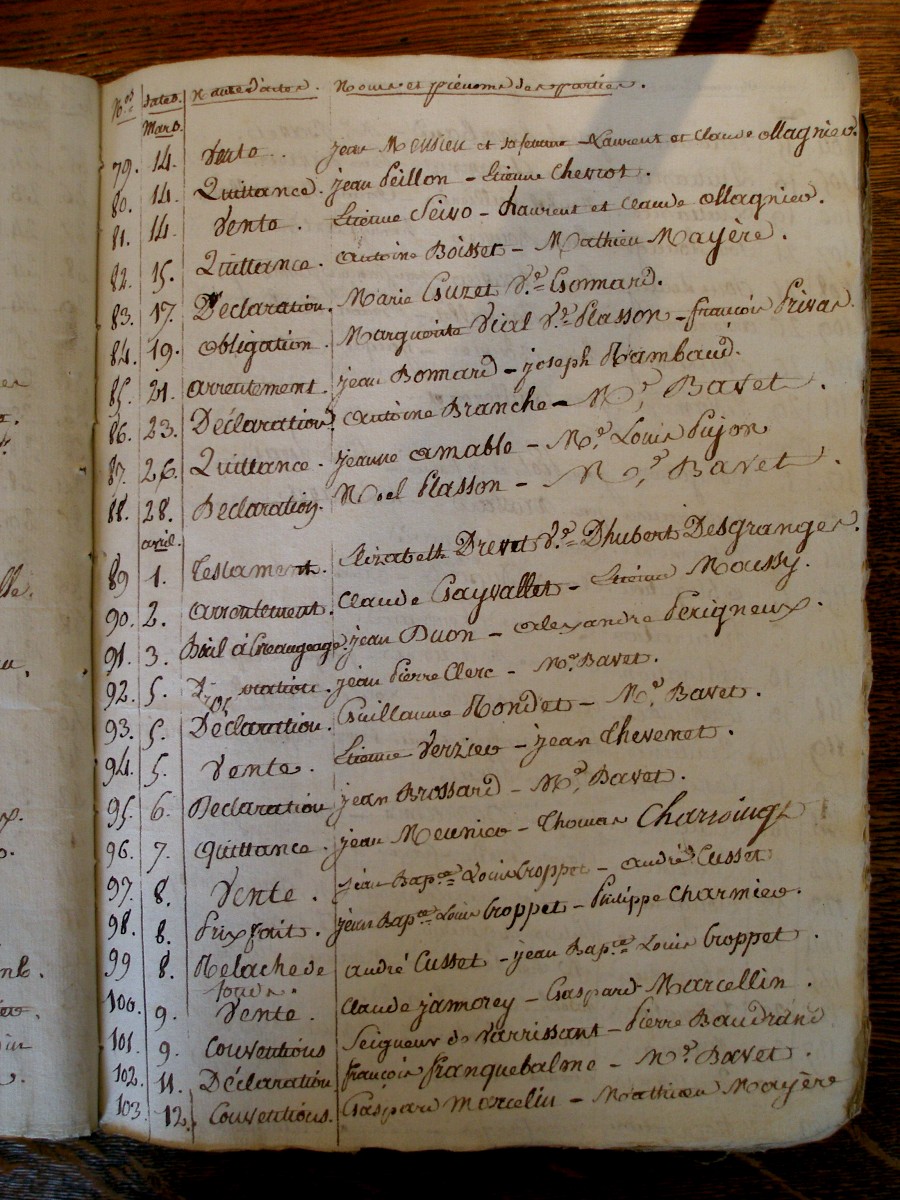 N.os dates. Nature d'actes. Noms et prénoms des parties.
Mars.
79. 14. Vente. jean Meusieu et sa femme - Laurent et Claude Ollagnier.
80. 14. Quittance. jean Peillon - Etienne Cheviot.
81. 14. Vente. Etienne Seivo - Laurent et Claude Ollagnier.
82. 15. Quittance. Antoine Boisset - Mathieu Mayère.
83. 17. Declaration. Marie Guzet V.e
84. 19. Obligation. Marguerite Vial V.e Plasson - françois Privas.
85. 21. Arrentement. jean Bonnard - joseph Rambaud.
86. 23. Déclaration. Antoine Branche - M.e Bavet.
87. 26. Quittance. jeanne Amable - M.e Louis Pujon
88. 28. Declaration. Noel Plasson - M.e Bavet.
avril.
89 1. Testament. Elizabeth Drevet V.e Dhubert Desgranges.
90. 2. Arrentement. Claude Gayvallet - Etienne Moussy.
91. 3. Bail à Grangeage. jean Duon - Alexandre Périgneux.
92. 5. jean Pierre Clerc - M.e Bavet.
93. 5. Déclaration. Guillaume Rondet - M.e Bavet.
94. 5. Vente. Etienne Verzieo - jean Thevenet.
95. 6. Declaration jean Brossard - M.e Bavet.
96. 7. Quittance. jean Meunier - Thomas
97. 8. Vente. jean Bap.te Louis Croppet - André Cusset
98. 8. Prix fait. jean Bap.te Louis Croppet - Philippe Charmieo.
99 8. Relache de André Cusset - jean Bap.te Louis Croppet.
fonds.
100. 9. Vente. Claude jamorey - Gaspard Marcellin.
101. 9. Conventions Seigneur de Varrissant - Pierre Baudrand
102. 11. Déclaration françois franquebalme - M.e Bavet.
103. 12. Conventions. Gaspard Marcelin - Mathieu Mayère